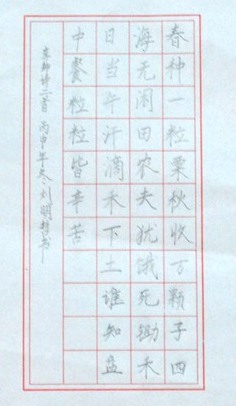 春种一粒粟秋收万颗子四
海无闲田农夫犹饿死锄禾
日当午汗滴禾下土谁知盘
中餐粒粒皆辛苦
古诗二首 丙申年冬 刘明哲书